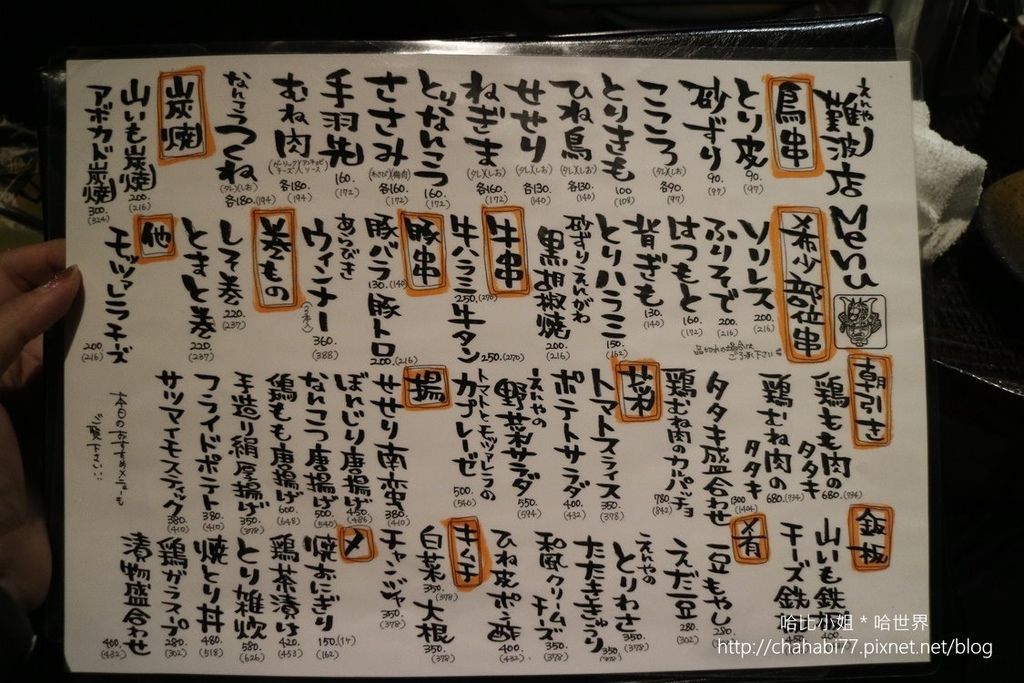 えんや
難波店
Menu
鳥串
とり皮 90.(97)
砂ずり 90.(97)
こころ (タレ)(しお) 各90.(97)
とりきも 100(108)
ひね鳥 (タレ)(しお) 各130.(140)
せせり (タレ)(しお) 各130.(140)
ねぎま (タレ)(しお) 各160.(172)
とりなんこつ 160.(172)
ささみ (わさび)(梅肉) 各160.(172)
手羽先 160.(172)
むね肉 各180.(194)
なんこつつくね (タレ)(しお) 各180.(194)
山炭焼
山いも炭焼 200.(216)
アボカド炭焼 300.(324)
希少部位串
ソリレス 200.(216)
ふりそで 200.(216)
はつもと 160.(172)
背ぎも 130.(140)
とりハラミ 150.(162)
砂ずりえんがわ
黒胡椒焼 200.(216)
品切れの場合は
ご了承下さい
牛串
牛ハラミ 250.(270)
牛タン 250.(270)
豚串
豚バラ 130.(140)
豚トロ 200.(216)
あらびき
ウィンナー (2本入) 360.(388)
巻もの
しそ巻 220.(237)
とまと巻 220(237)
他
モッツァレラチーズ 200(216)
朝引き
鶏もも肉のタタキ 680.(734)
鶏むね肉のタタキ 680.(734)
タタキ盛合わせ 1300(1404)
鶏むね肉のカルパッチョ 780(842)
菜
トマトスライス 350.(378)
ポテトサラダ 400.(432)
えんやの
野菜サラダ 550.(594)
トマトとモッツァレラの
カプレーゼ 500.(540)
揚
せせり南蛮 380(410)
ぼんじり唐揚げ 450.(486)
なんこつ唐揚げ 500.(540)
鶏もも唐揚げ 600.(648)
手造り絹厚揚げ 350.(378)
フライドポテト 380.(410)
サツマイモスティック 380.(410)
本日のおすすめメニューも
ご覧下さい
鉄板
山いも鉄
チーズ鉄
〆肴
豆もやし 280
えだ豆 280.(302)
えんやの
とりわさ 350(378)
たたききゅうり 350.(378)
和風クリームチーズ 350(378)
ひね皮ポン酢 400.(432)
キムチ
白菜 350.(378)
大根 350.(378)
チャンジャ 350.(378)
〆
焼おにぎり 150.(1ケ)(162)
鶏茶漬け 420.(453)
とり雑炊 580.(626)
焼とり丼 480.(518)
鶏ガラスープ 280.(302)
漬物盛合わせ 400.(432)
哈比小姐 * 哈世界
http://chahabi77.pixnet.net/blog